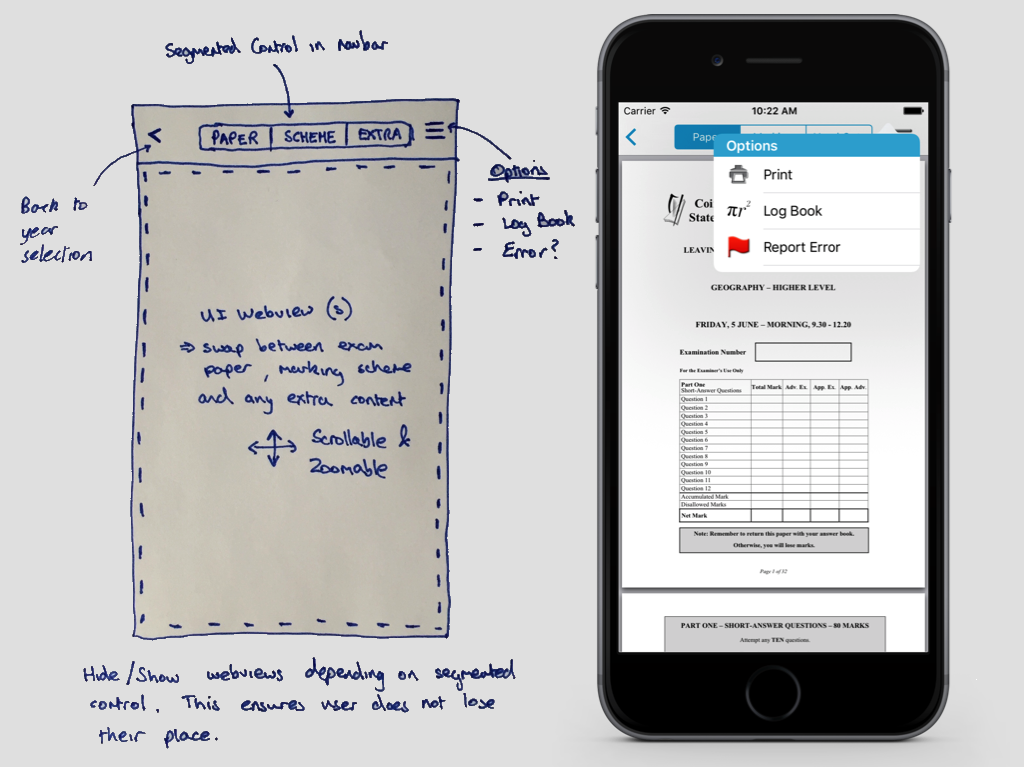 Segmented Control in navbar
< PAPER SCHEME EXTRA
Back to
year
selection
Options
- Print
- Log Book
- Error?
UI Webview (s)
⇒ swap between exam
paper, marking scheme
and any extra content
Scrollable &
Zoomable
Hide/Show webviews depending on segmented
control. This ensures user does not lose
their place.
Carrier 10:22 AM
Pape
Options
Print
πr² Log Book
Report Error
Coi
State
LEAVIN
GEOGRAPHY – HIGHER LEVEL
FRIDAY, 5 JUNE – MORNING, 9.30 - 12.20
Examination Number
For the Examiner's Use Only
Part One Total Mark Adv. Ex. App. Ex. App. Adv.
Short-Answer Questions
Question 1
Question 2
Question 3
Question 4
Question 5
Question 6
Question 7
Question 8
Question 9
Question 10
Question 11
Question 12
Accumulated Mark
Disallowed Marks
Net Mark
Note: Remember to return this paper with your answer book.
Otherwise, you will lose marks.
Page 1 of 32
PART ONE – SHORT-ANSWER QUESTIONS – 80 MARKS
Attempt any TEN questions.